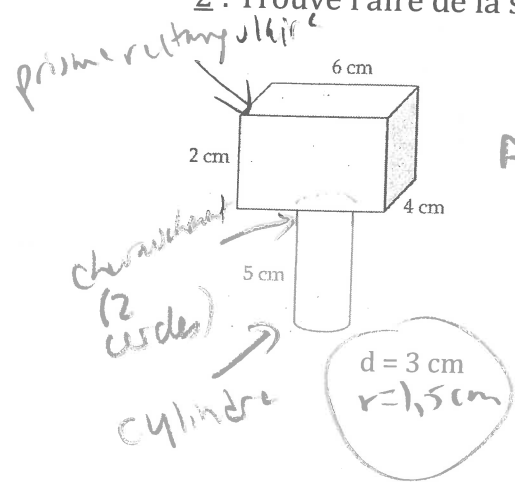 2 : Trouve l'aire de la s
prisme rectangulaire
6 cm
2 cm
4 cm
chevauchement
(2
cercles)
5 cm
cylindre
d = 3 cm
r=1,5 cm